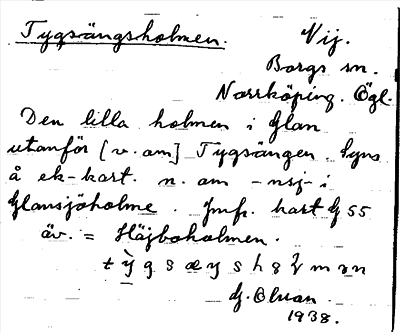 Tygsängsholmen.
Vij.
Borgs sn.
Norrköping. Ögl.
Den lilla holmen i Glan
utanför [v. om] Tygsängen. Syns
å ek-kart. n. om -nsj- i
Glansjöholme. Jmfr. kart G 55
äv. = Höjboholmen.
G. Olson.
1938.